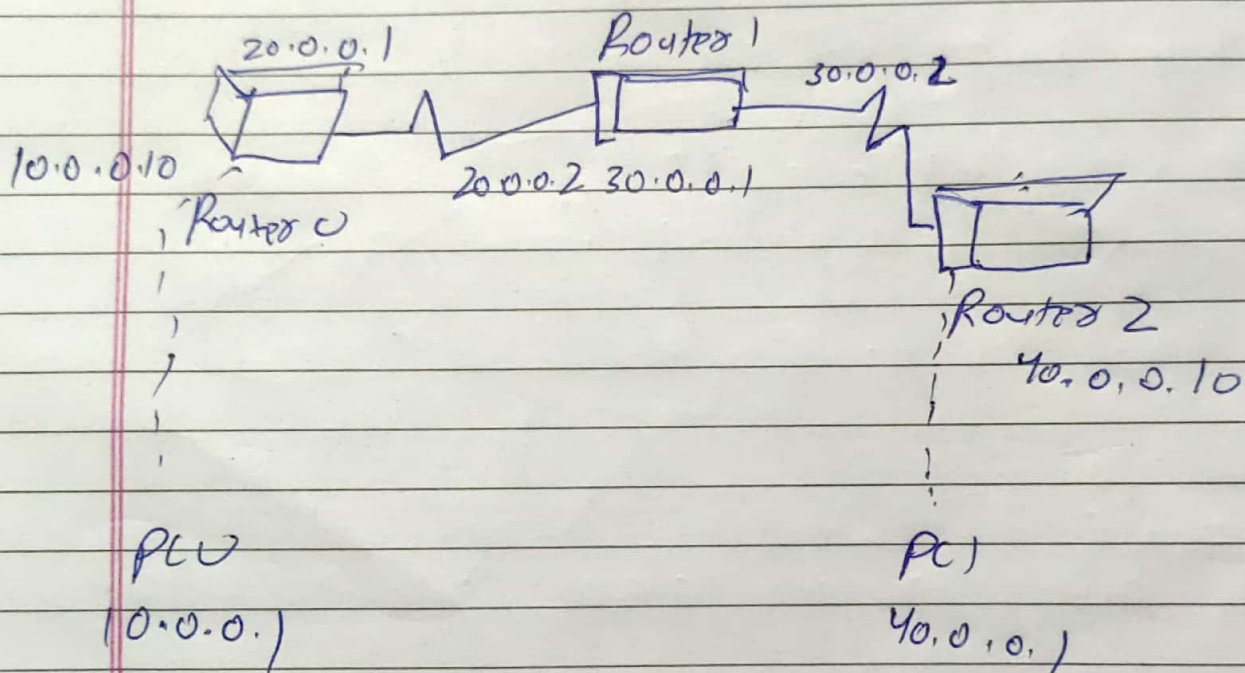 20.0.0.1
Router 1
30.0.0.2
10.0.0.10
20.0.0.2 30.0.0.1
Router 0
Router 2
40.0.0.10
PC0
PC1
10.0.0.1
40.0.0.1